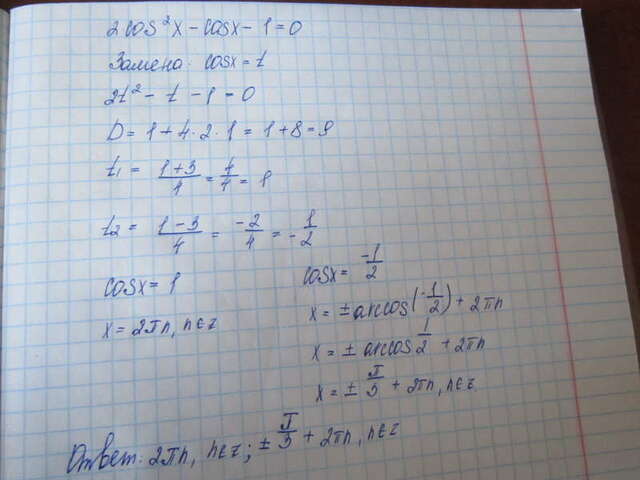 2cos²x - cosx - 1 = 0
Замена: cosx = t
2t² - t - 1 = 0
D = 1 + 4·2·1 = 1 + 8 = 9
t₁ = (1+3)/4 = 4/4 = 1
t₂ = (1-3)/4 = -2/4 = -1/2
cosx = 1
x = 2πn, n∈z
cosx = -1/2
x = ± arccos(-1/2) + 2πn
x = ± arccos 1/2 + 2πn
x = ± π/3 + 2πn, n∈z
Ответ: 2πn, n∈z; ± π/3 + 2πn, n∈z